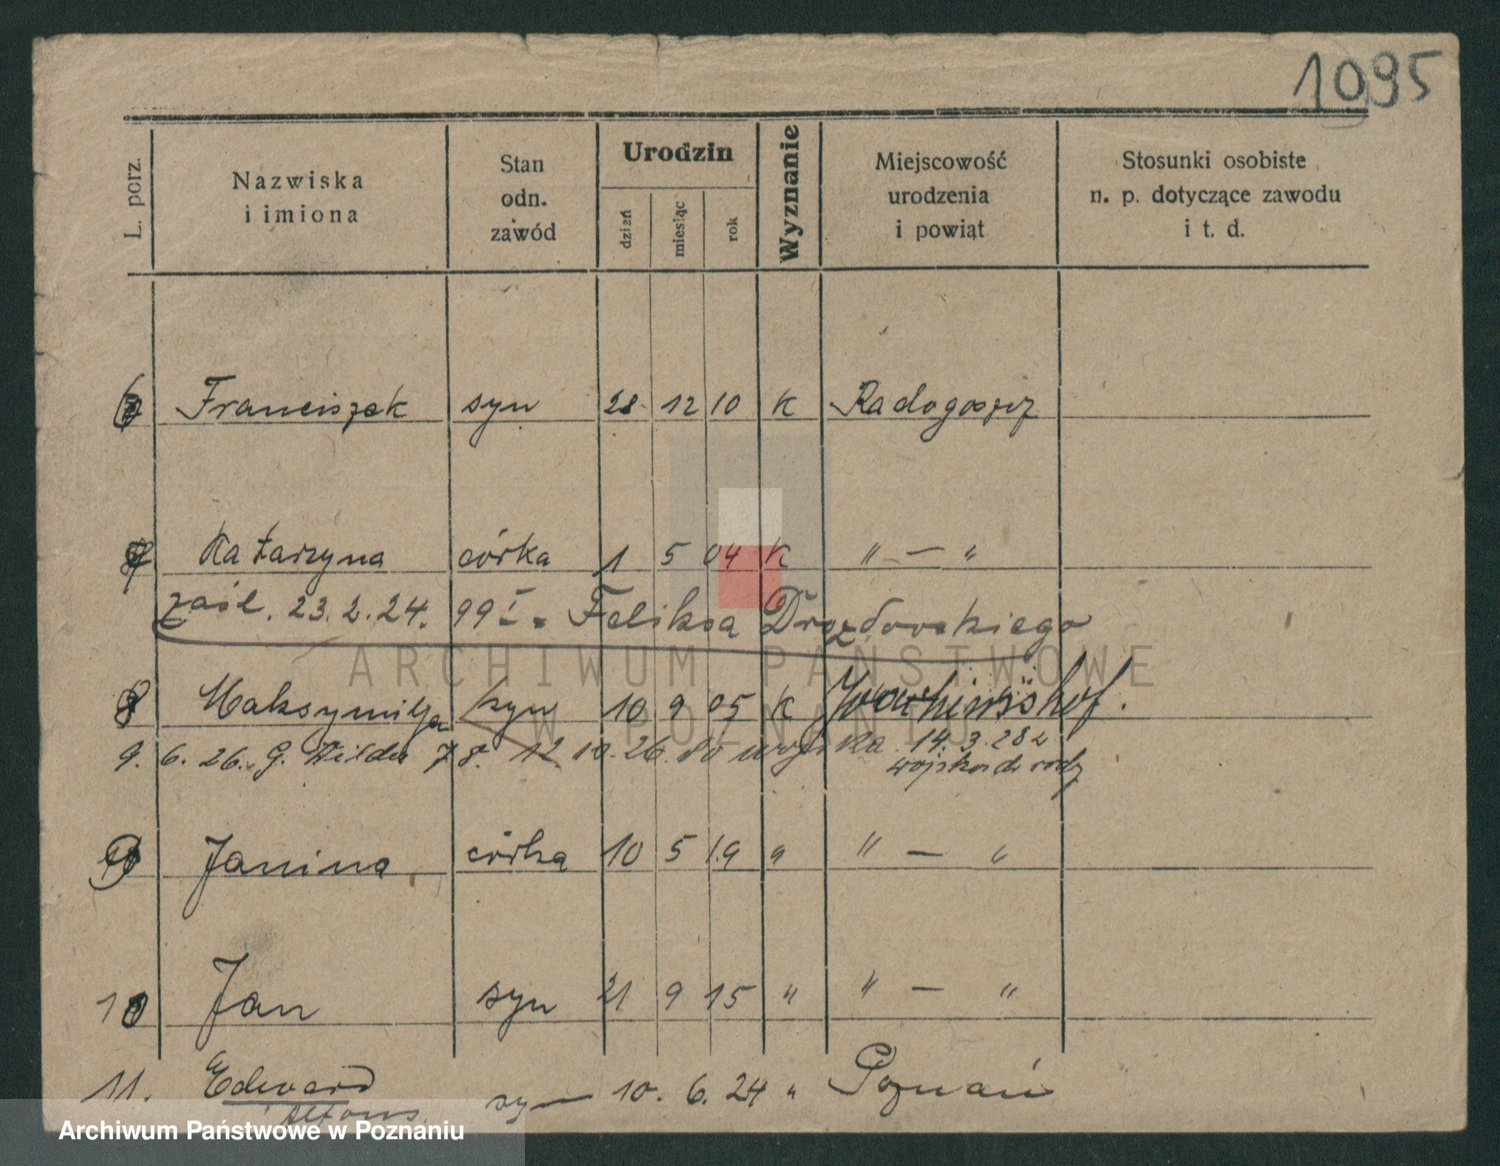 1095
L. porz.
Nazwiska i imiona
Stan odn. zawód
Urodzin
dzień miesiąc rok
Wyznanie
Miejscowość urodzenia i powiąt
Stosunki osobiste n. p. dotyczące zawodu i t. d.
6 Franciszek syn 28 12 10 K Radogoszcz
7 Katarzyna córka 1 5 04 K " — "
zaśl. 23.2.24. 99 I Feliksa Drozdowskiego
ARCHIWUM PAŃSTWOWE
8 Maksymilja syn 10 9 05 K
W POZNANIU
9. 6. 26. G. Wilda 78. 12 10. 26. do wojska 14. 3. 28 z
wojska do rodz
9 Janina córka 10 5 19 " " — "
10 Jan syn 21 9 15 " " — "
11. Edward sy— 10. 6. 24 " Poznań
Alfons
Archiwum Państwowe w Poznaniu